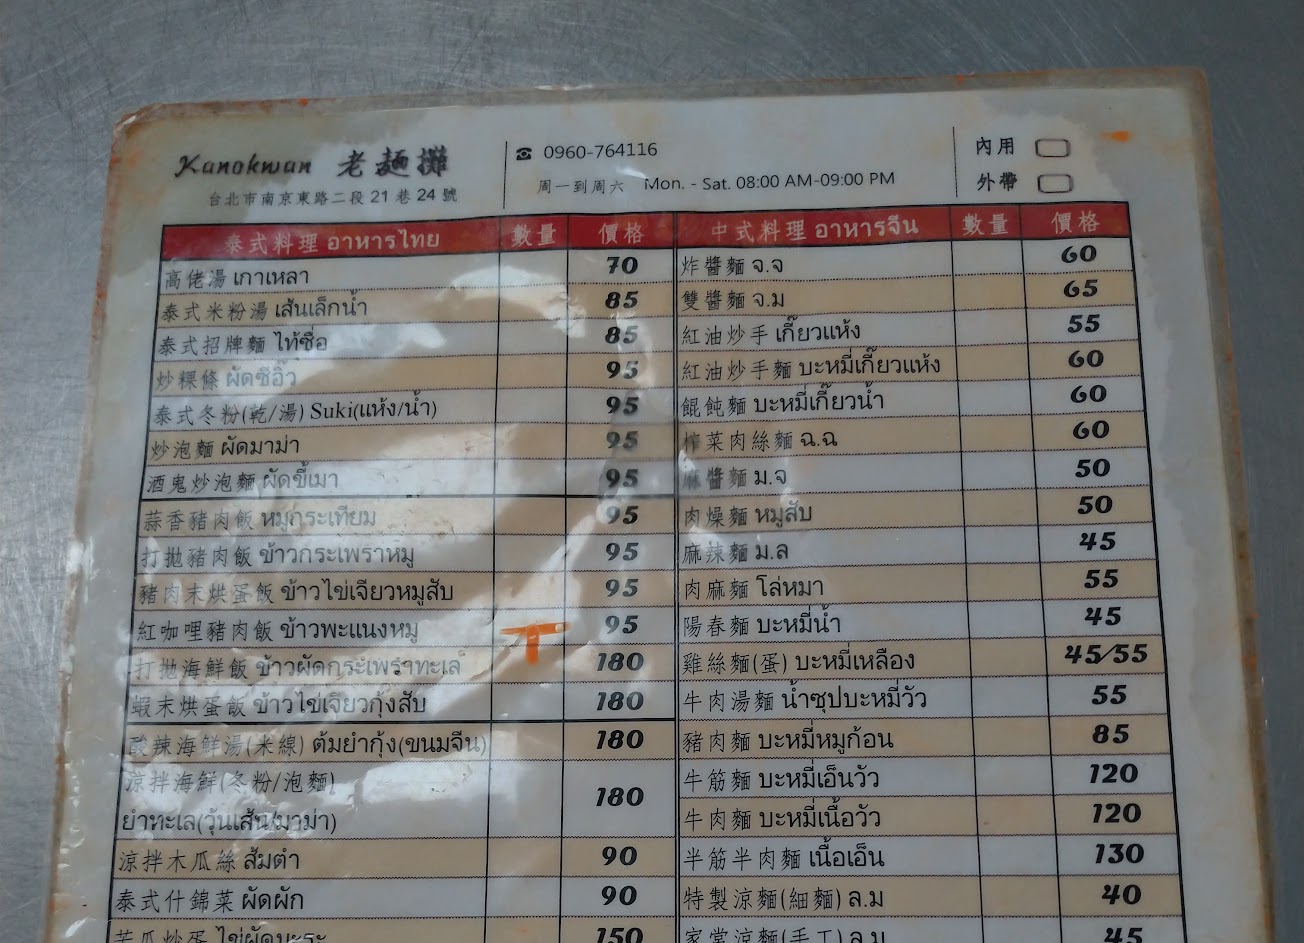 Kanokwan 老麵攤
台北市南京東路二段 21 巷 24 號
☎ 0960-764116
周一到周六 Mon. - Sat. 08:00 AM-09:00 PM
內用
外帶
泰式料理 อาหารไทย 數量 價格
高佬湯 เกาเหลา 70
泰式米粉湯 เส้นเล็กน้ำ 85
泰式招牌麵 ไท้ซื่อ 85
炒粿條 ผัดซิอิ๊ว 95
泰式冬粉(乾/湯) Suki(แห้ง/น้ำ) 95
炒泡麵 ผัดมาม่า 95
酒鬼炒泡麵 ผัดขี้เมา 95
蒜香豬肉飯 หมูกระเทียม 95
打拋豬肉飯 ข้าวกระเพราหมู 95
豬肉末烘蛋飯 ข้าวไข่เจียวหมูสับ 95
紅咖哩豬肉飯 ข้าวพะแนงหมู 95
打拋海鮮飯 ข้าวผัดกระเพราทะเล 180
蝦末烘蛋飯 ข้าวไข่เจียวกุ้งสับ 180
酸辣海鮮湯(米線) ต้มยำกุ้ง(ขนมจีน) 180
涼拌海鮮(冬粉/泡麵)
ยำทะเล(วุ้นเส้น/มาม่า) 180
涼拌木瓜絲 ส้มตำ 90
泰式什錦菜 ผัดผัก 90
苦瓜炒蛋 ไข่ผัดมะระ 150
中式料理 อาหารจีน 數量 價格
炸醬麵 จ.จ 60
雙醬麵 จ.ม 65
紅油炒手 เกี๊ยวแห้ง 55
紅油炒手麵 บะหมี่เกี๊ยวแห้ง 60
餛飩麵 บะหมี่เกี๊ยวน้ำ 60
榨菜肉絲麵 ฉ.ฉ 60
麻醬麵 ม.จ 50
肉燥麵 หมูสับ 50
麻辣麵 ม.ล 45
肉麻麵 โล่หมา 55
陽春麵 บะหมี่น้ำ 45
雞絲麵(蛋) บะหมี่เหลือง 45/55
牛肉湯麵 น้ำซุปบะหมี่วัว 55
豬肉麵 บะหมี่หมูก้อน 85
牛筋麵 บะหมี่เอ็นวัว 120
牛肉麵 บะหมี่เนื้อวัว 120
半筋半肉麵 เนื้อเอ็น 130
特製涼麵(細麵) ล.ม 40
家常涼麵(手工) ล.ม 45